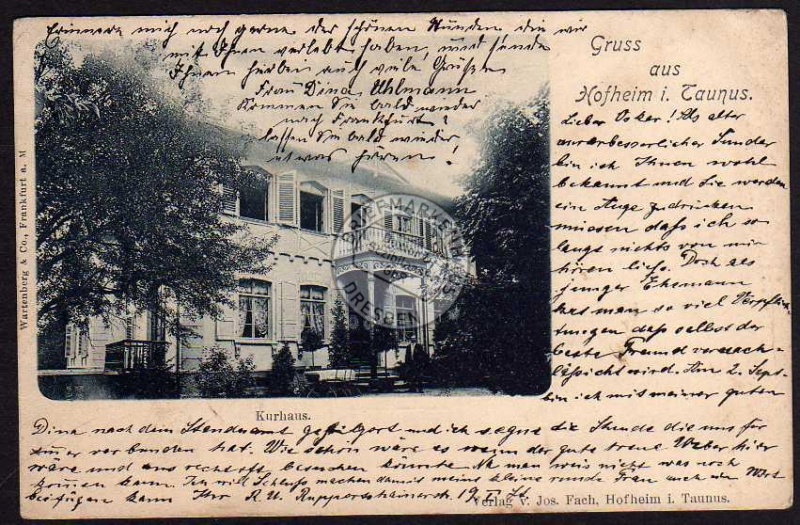 Erinnere mich noch gerne der schönen Stunden die wir
mit Ihnen verlebt haben, und sende
Ihnen hierbei auch viele Grüsse
Frau Dina Uhlmann
Kommen Sie bald wieder
nach Frankfurt?
Lassen Sie bald wieder
etwas hören!
Gruss
aus
Hofheim i. Taunus.
Lieber Onkel! Als alter
unverbesserlicher Sünder
bin ich Ihnen wohl
bekannt und Sie werden
ein Auge zudrücken
müssen dass ich so
lange nichts von mir
hören liess. Doch als
junger Ehemann
hat man so viel Verpflich
tungen dass selbst der
beste Freund vernach-
lässicht wird. Am 2. Sept.
bin ich mit meiner guten
Kurhaus.
Dina nach dem Standesamt gefolgert und ich segne die Stunde die uns für
immer verbunden hat. Wie schön wäre es wenn der gute treue Weber hier
wäre und uns recht oft besuchen könnte. Na man weiss nicht was noch
kommen kann. Ich will Schluss machen damit meine kleine runde Frau auch ein Wort
beifügen kann Ihr R. U. Ruppertshainerstr. 19
Verlag v. Jos. Fach, Hofheim i. Taunus.
Wartenberg & Co., Frankfurt a. M
BRIEFMARKEN
DRESDEN